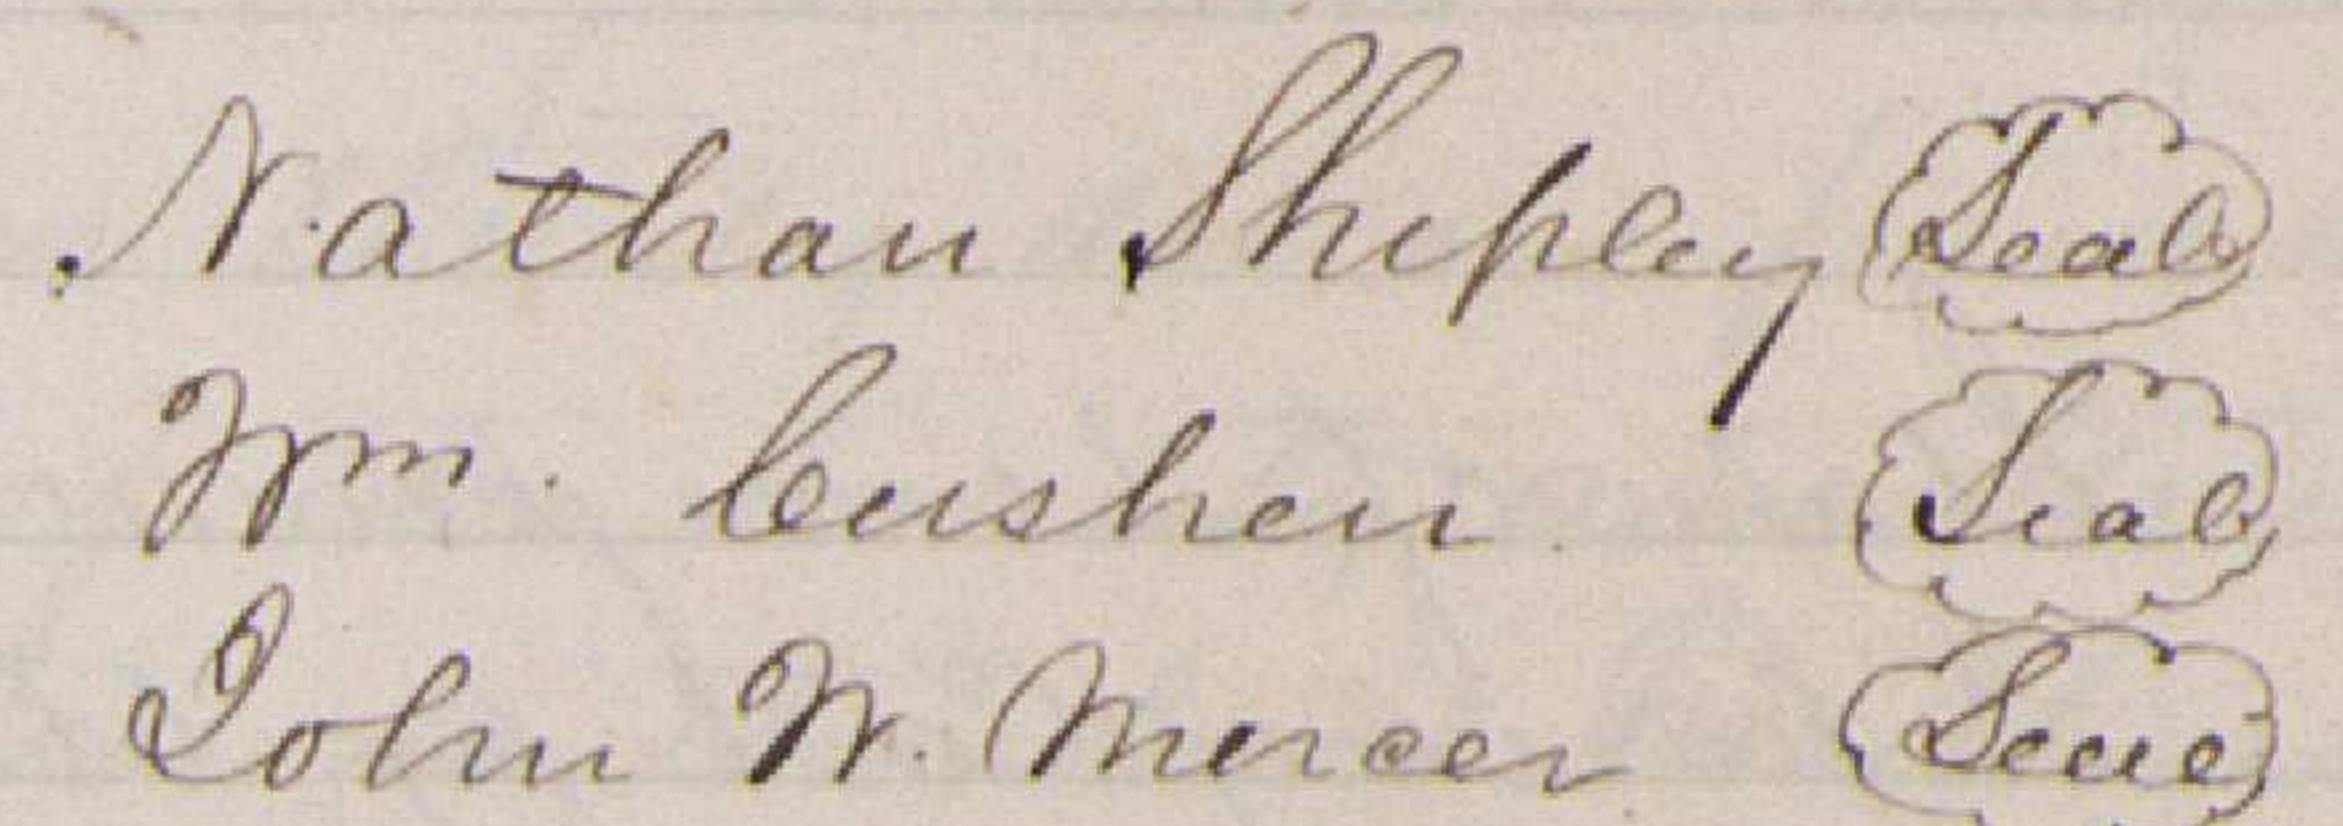 Nathan Shipley Seal
Wm. Cushen Seal
John W. Mercer Seal